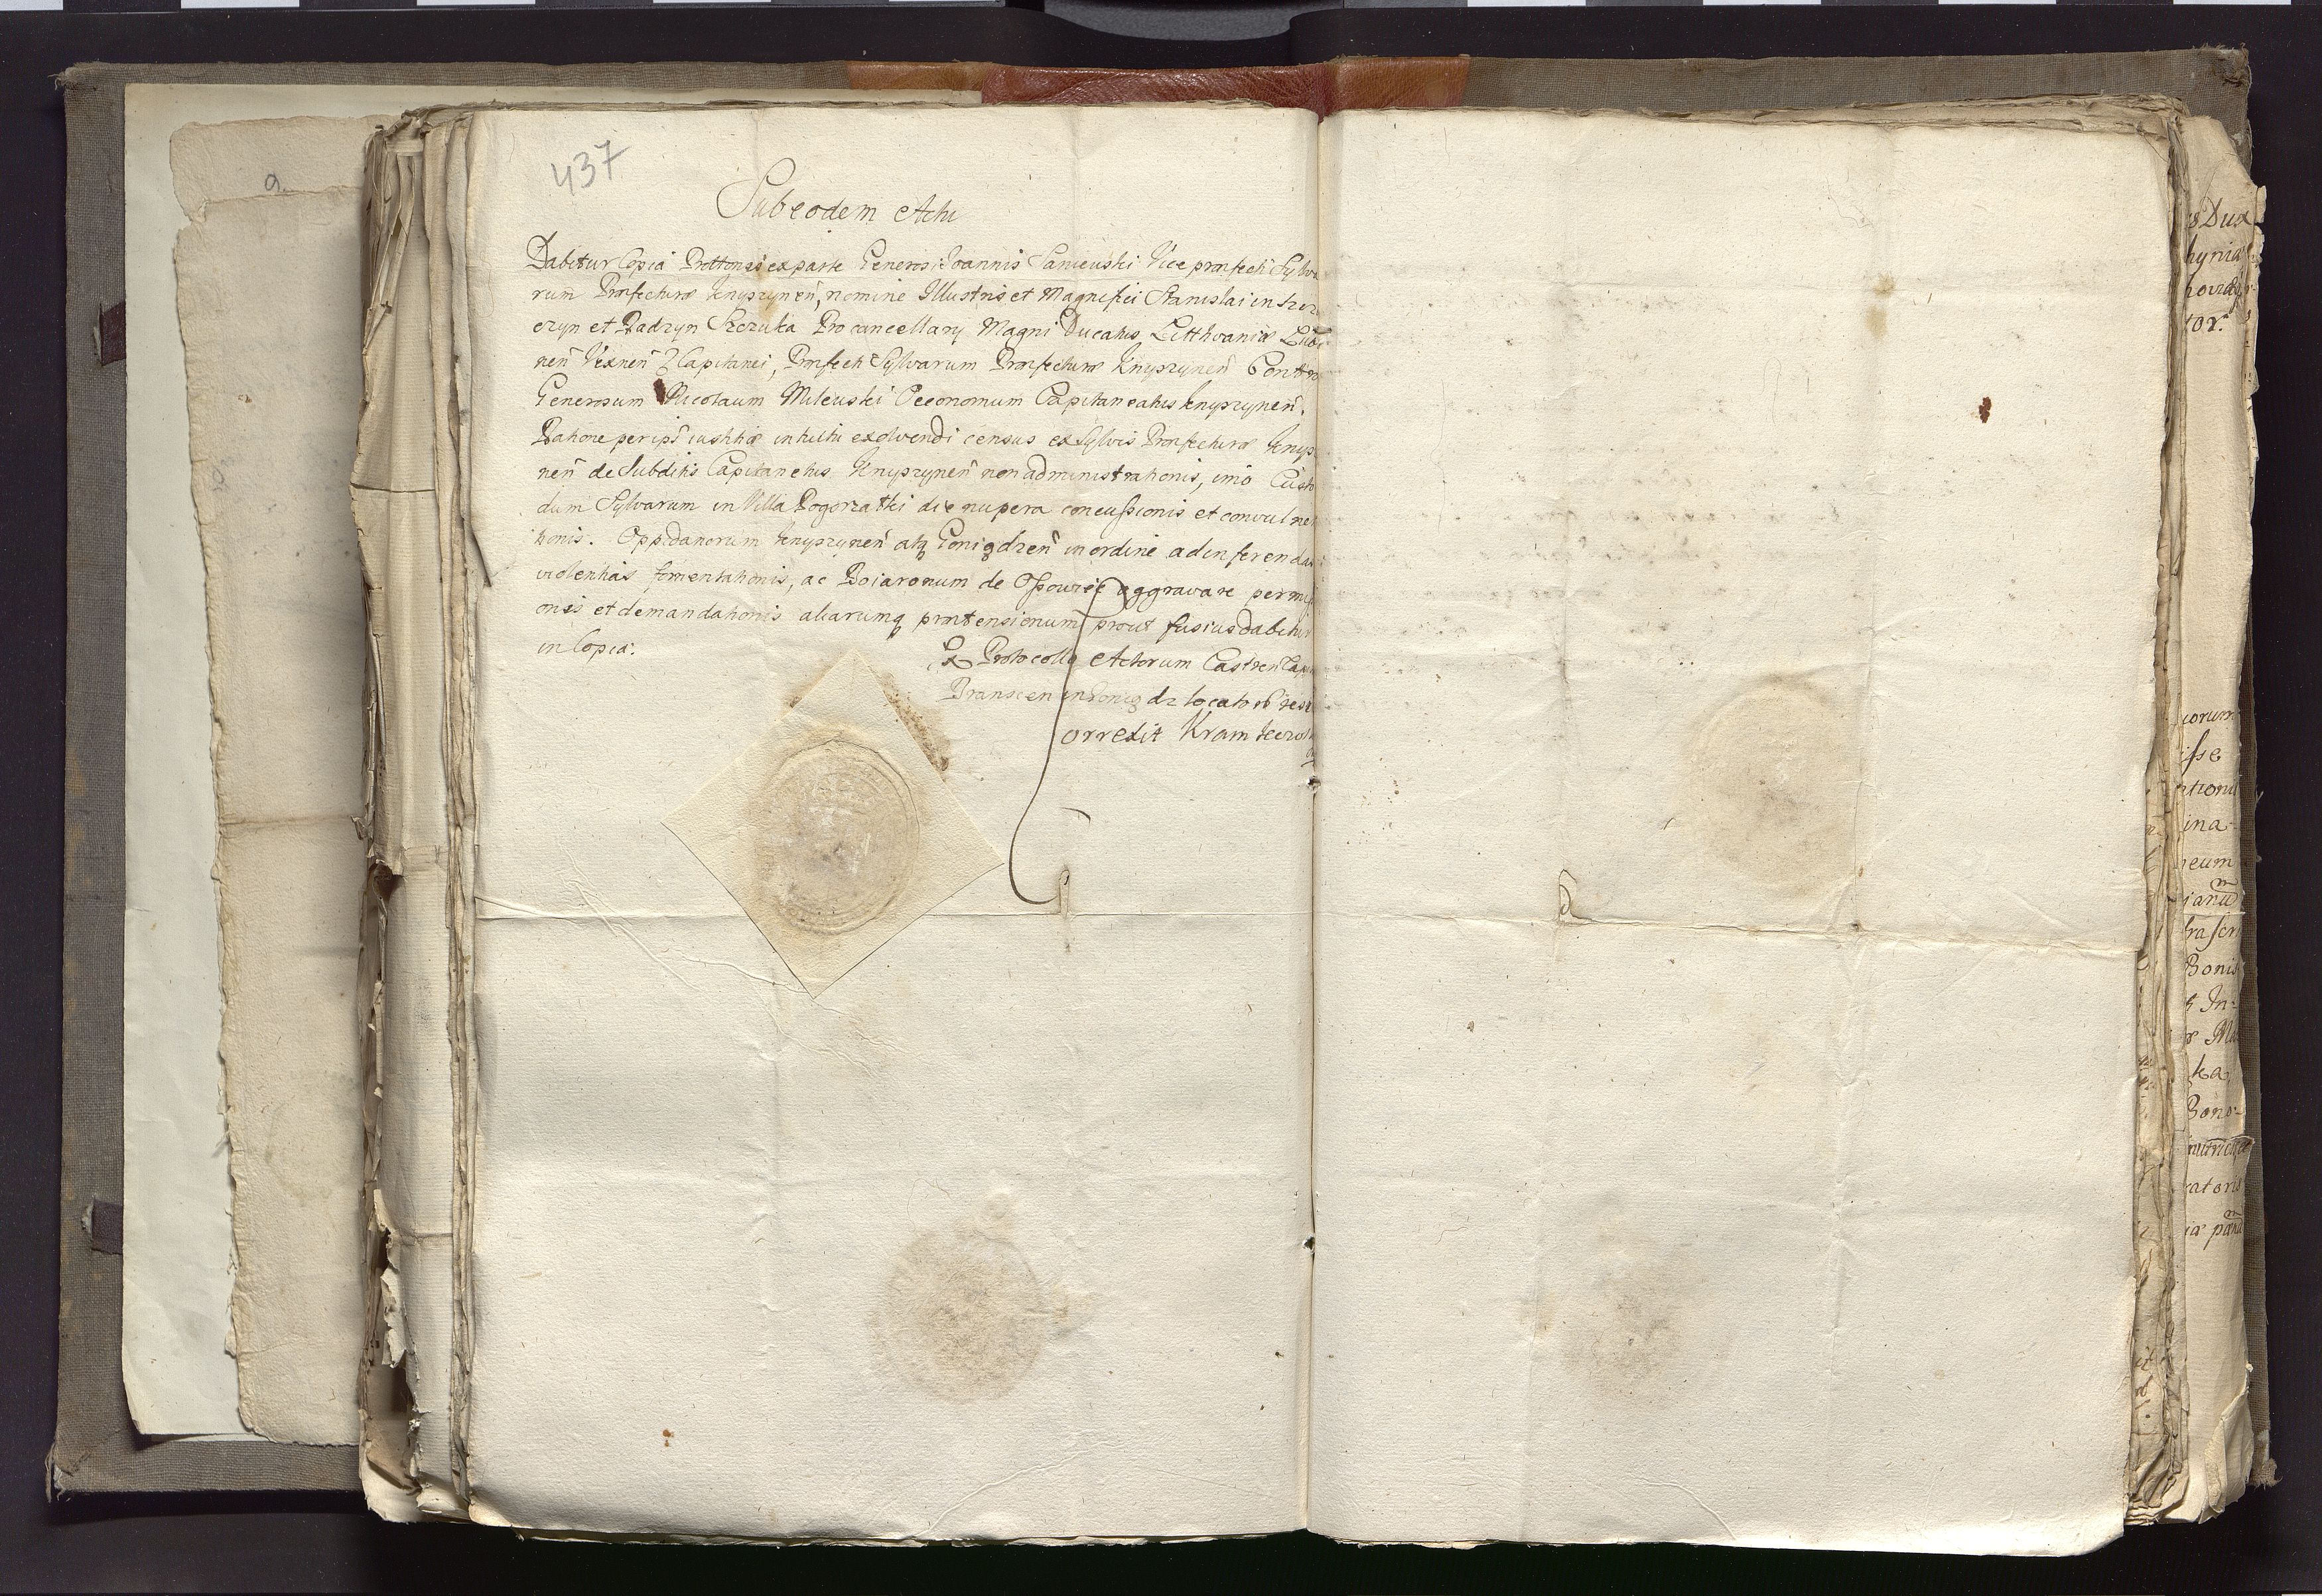 a.
437
Sub eodem Actu
Dabitur Copia Prottonis ex parte Generosi Joannis Saniewski Vice præfecti Sylva
rum Præfecturæ Knyszynen̄, nomine Illustris et Magnifici Stanislai in Szcz
czyn et Radzyn Szczuka Procancellary Magni Ducatus Litthvaniæ Lub
nen̄ Vexnen̄ Capitanei, Præfecti Sylvarum Præfecturæ Knyszynen̄ Contra
Generosum Nicolaum Milewski Œconomum Capitaneatus Knyszynen̄.
Ratione per ips̄ iustitiæ intuitu exolvendi census ex Sylvis Præfecturæ Knysz
nen̄ de Subditis Capitanetus Knyszynen̄ non administrationis, imo Custo
dum Sylvarum in Villa Pogorzatki die nupera concussionis et convulne
tionis. Oppidanorum Knyszynen̄ atq Goniądzen̄ in ordine ad inferendas
violentias fomentationis, ac Boiaronum de Ossowie aggravare permis
onis et demandationis aliarumq prætensionum prout fusius dabitur
in Copia.
Ex Protocollo Actorum Castren̄ Cap
Branscen in Goniądz locator
Correxit Kramkowsk
s Dux
hynia
tor.
iorum
isse
ationi
ina
neum
ianū
fra scri
Bonis
In-
Ma
ka
Bono-
catoris